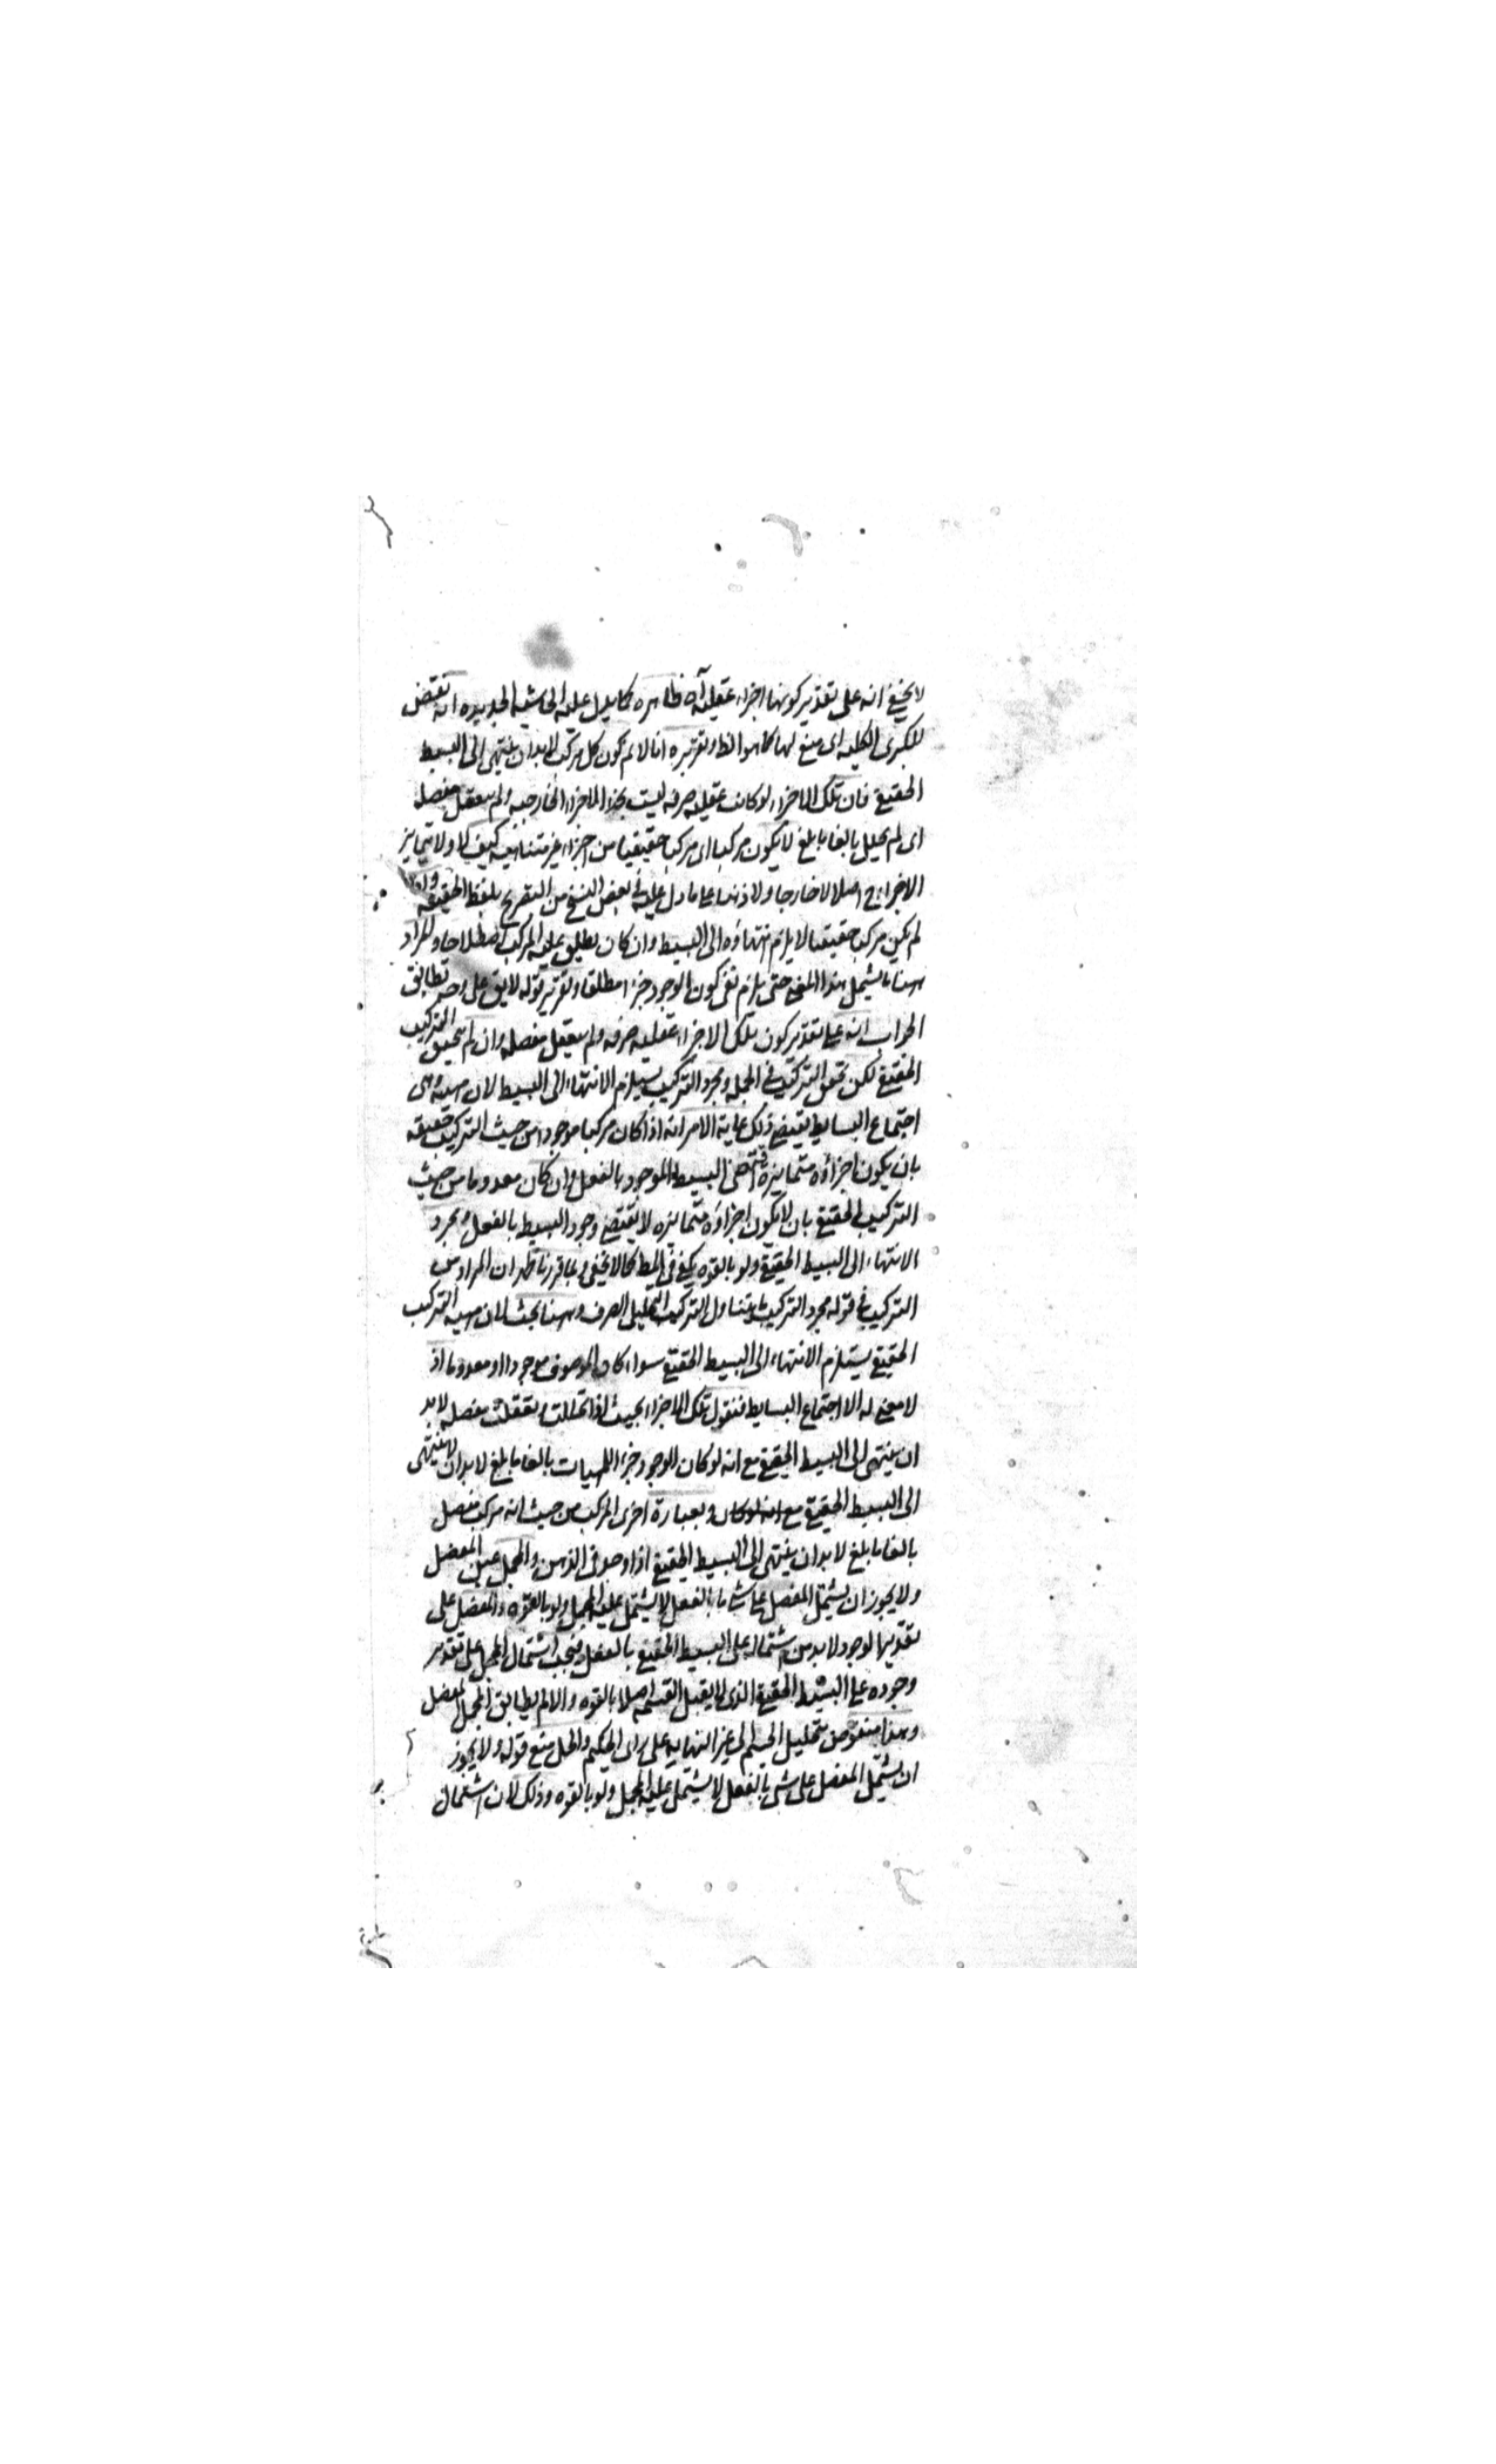 لا يخفى انه على تقدير كونها اجزاء عقلية آه ظاهره كما يدل عليه الحاشية الجديده انه نقض
للكبرى الكليه اى منع لها كما هو الظ وتقريره انا لا نم كون كل مركب لابد ان ينتهى الى البسيط
الحقيقى فان تلك الاجزاء لو كانت عقليه صرفه ليست بحذاء الاجزاء الخارجيه ولم يتعقل مفصله
اى لم يحلل بالغا ما بلغ لا يكون مركبا اى مركبا حقيقيا من اجزاء غير متناهيه كيف لا ولا تمايز
الاجزاء ح اصلا لا خارجا ولا ذهنا على ما دل عليه فى بعض النسخ من التصريح بلفظ الحقيقه واذا
لم يكن مركبا حقيقيا لا يلزم انتهاؤه الى البسيط وان كان يطلق عليه المركب اصطلاحا والمراد
ههنا ما يشمل هذا المعنى حتى يلزم نفى كون الوجود جزءا مطلقا وتقرير قوله لا يق على احد تطابق
الجواب انه على تقدير كون تلك الاجزاء عقليه صرفه ولم يتعقل مفصله وان لم يتحقق التركيب
الحقيقى لكن تحقق التركيب فى الجمله ومجرد التركيب يستلزم الانتهاء الى البسيط لان مهيه وهى
اجتماع البسايط يقتضى ذلك غاية الامر انه اذا كان مركبا موجودا من حيث التركيب حقيقه
بان يكون اجزاؤه متمايزه اقتضى البسيط الموجود بالفعل وان كان معدوما من حيث
التركيب الحقيقى بان لا يكون اجزاؤه متمايزه لا يقتضى وجود البسيط بالفعل ومجرد
الانتهاء الى البسيط الحقيقى ولو بالقوه يكفى فى المط كما لا يخفى وبما قررنا ظهر ان المراد من
التركيب فى قوله مجرد التركيب ما يتناول التركيب التحليلى الصرف وههنا بحث لان مهيه التركيب
الحقيقى يستلزم الانتهاء الى البسيط الحقيقى سواء كان الموصوف موجودا او معدوما اذ
لا معنى له الا اجتماع البسايط فنقول تلك الاجزاء بحيث اذا تحللت وتعقلت مفصله لابد
ان ينتهى الى البسيط الحقيقى مع انه لو كان الوجود جزء المهيات بالغا ما بلغ لابد ان لا ينتهى
الى البسيط الحقيقى مع انه لو كان وبعبارة اخرى المركب من حيث انه مركب مفصل
بالغا ما بلغ لابد ان ينتهى الى البسيط الحقيقى اذا وجد فى الذهن والمجمل عين المفصل
ولا يجوز ان يشتمل المفصل على شئ ما بالفعل لا يشتمل عليه المجمل ولو بالقوه والمفصل على
تقدير الوجود لابد من اشتماله على البسيط الحقيقى بالفعل فيجب اشتمال المجمل على تقدير
وجوده على البسيط الحقيقى الذى لا يقبل القسمه اصلا بالقوه والا لم يطابق المجمل المفصل
وهذا منقوض بتحليل الجسم الى غير النهايه على راى الحكيم والحل منع قوله ولا يجوز
ان يشتمل المفصل على شئ بالفعل لا يشتمل عليه المجمل ولو بالقوه وذلك لان اشتمال